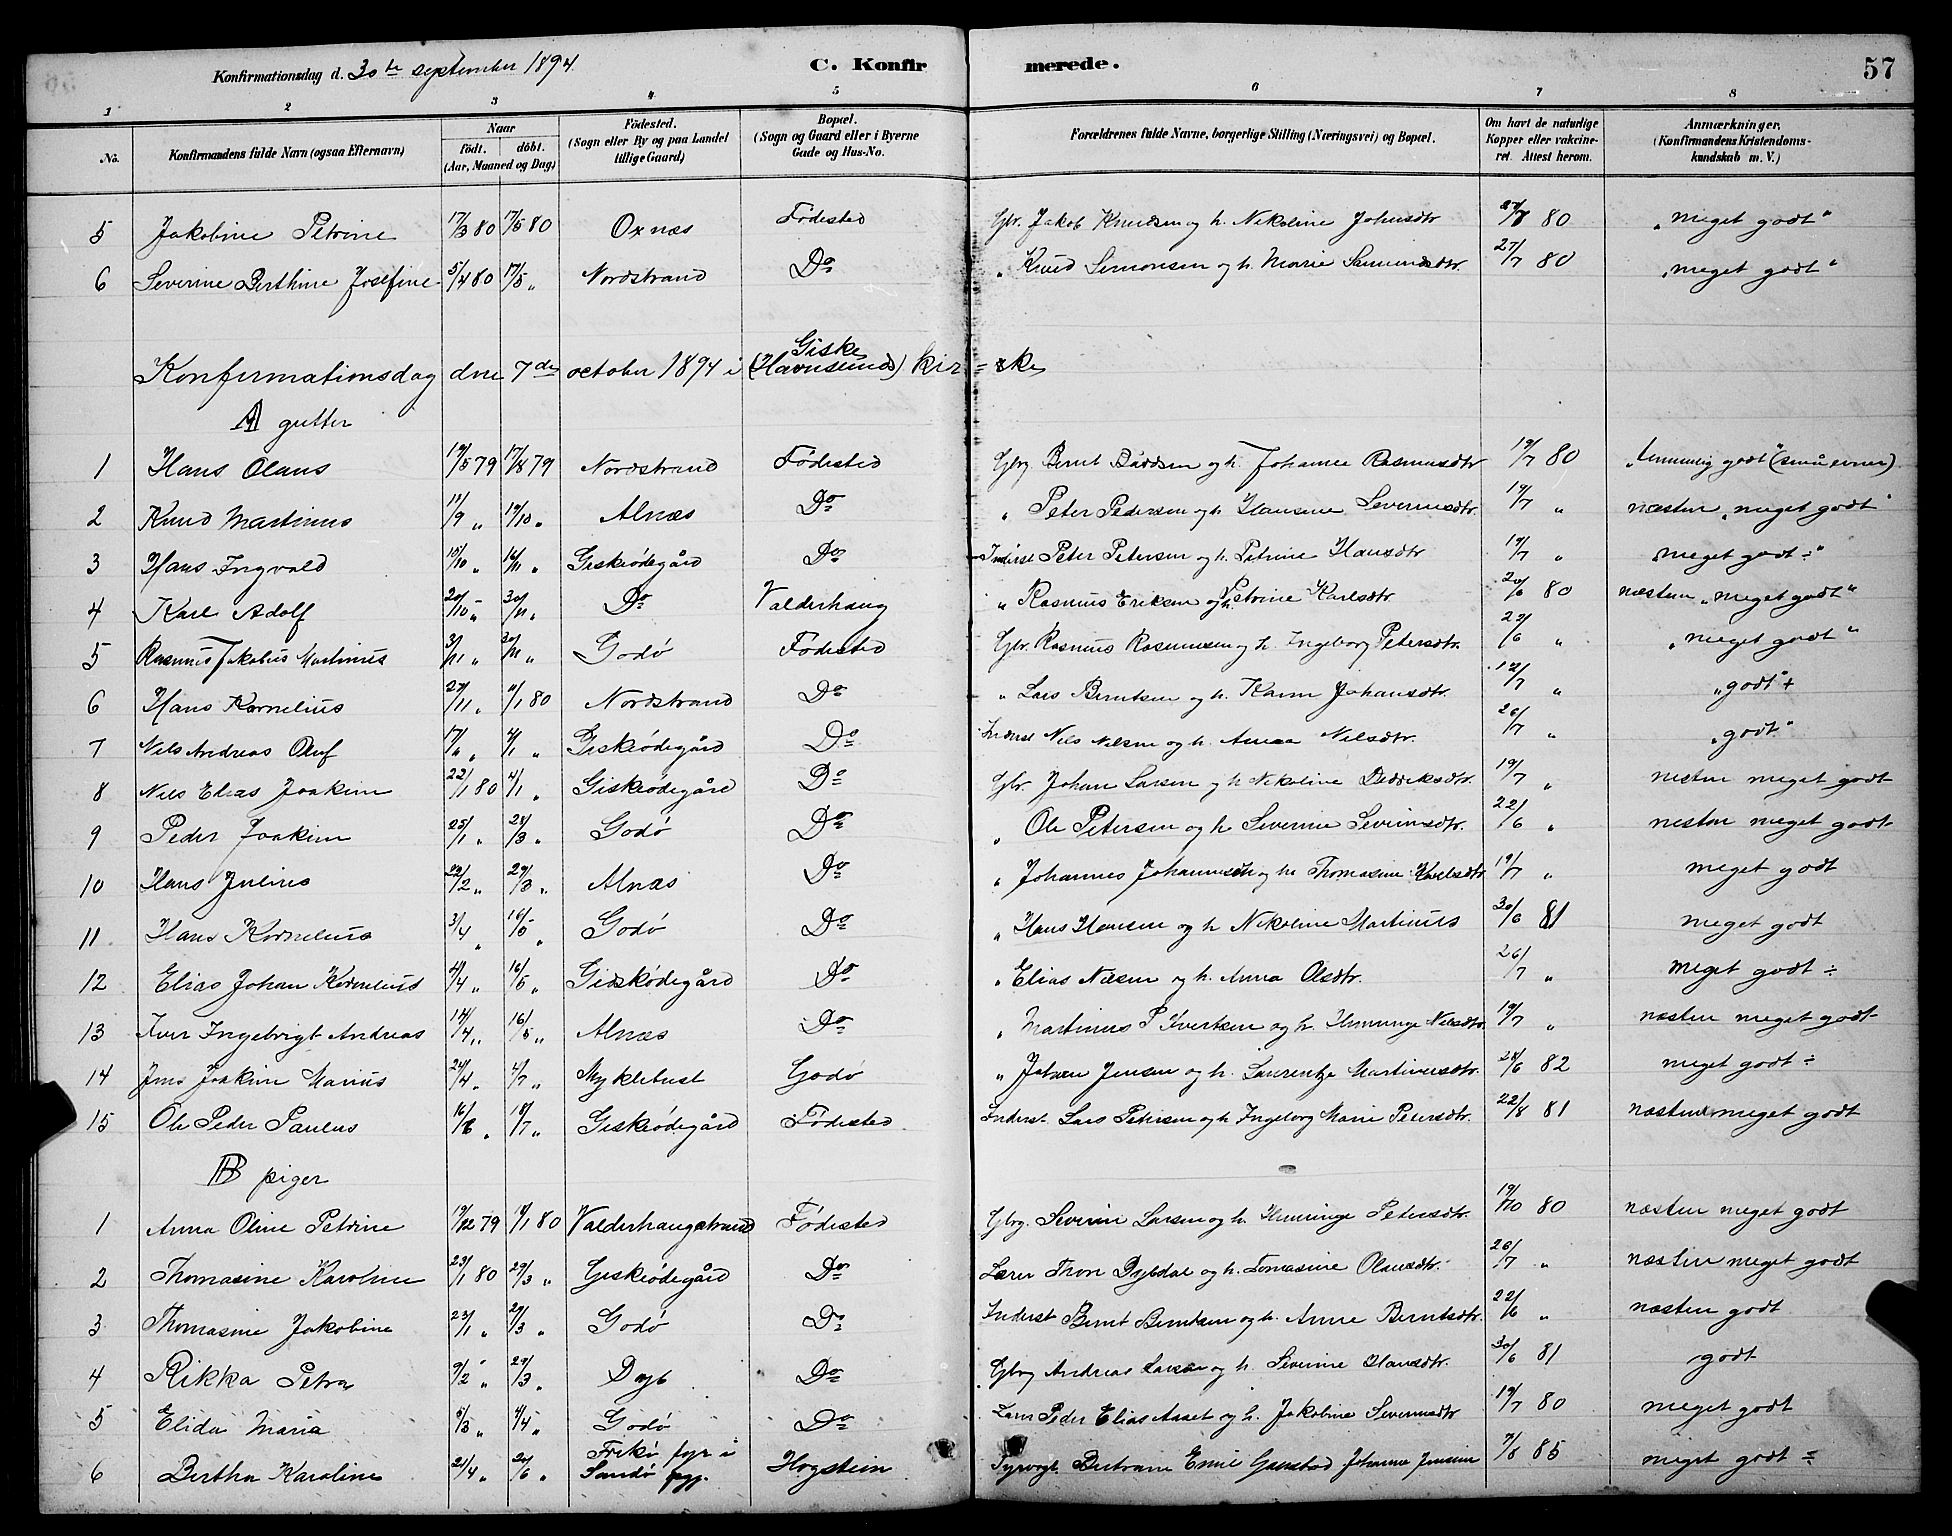 Konfirmationsdag d. 30te september 1894
C. Konfirmerede.
57
1 2 3 4 5 6 7 8
No. Konfirmandens fulde Navn (ogsaa Efternavn) Naar födt. döbt. (Aar, Maaned og Dag) Födested. (Sogn eller By og paa Landet tillige Gaard) Bopæl. (Sogn og Gaard eller i Byerne Gade og Hus-No. Forældrenes fulde Navne, borgerlige Stilling (Næringsvei) og Bopæl. Om havt de naturlige Kopper eller vakcineret. Attest herom. Anmærkninger, (Konfirmandens Kristendomskundskab m. V.)
5 Jakobine Petrine 17/3 80 17/5 80 Oxnæs Fødested Gbr. Jakob Knudsen og h. Nikoline Johnsdtr 80 "meget godt"
6 Severine Berthine Josefine 5/4 80 17/5 " Nordstrand Do " Knud Simonsen og h. Marie 27/7 80 "meget godt"
Konfirmationsdag den 7de october 1894 i Giske (Havnsund) kir=ke
A gutter
1 Hans Olaus 19/5 79 17/8 79 Nordstrand Fødested Gbrg Bernt Bårdsen og h. Johanne Rasmusdtr 19/7 80 "temmelig godt" (små evner)
2 Knud Martinus 11/9 " 19/10 " Alnæs Do " Peter Pedersen og h. Hansine Severinsdtr. 19/7 " næsten "meget godt"
3 Hans Ingvald 10/10 " 16/11 " Giskeødegård Do Inderst Peter Petersen og h. Petrine Hansdtr 19/7 " "meget godt ÷"
4 Karl Adolf 20/10 " 30/11 " Do Valderhaug " Rasmus Eriksen og h. Petrine Karlsdtr 20/6 80 næsten "meget godt"
5 Rasmus Jakobus Martinus 3/11 " 30/11 " Godø Fødested Gbr. Rasmus Rasmussen og h. Ingeborg Petersdtr. 22/6 " "meget godt"
6 Hans Kornelius 27/11 " 80 Nordstrand Do " Lars Berntsen og h. Karen Johansdtr. 12/7 " "godt" +
7 Nils Andreas Oluf " 4/1 " Giskeødegård Do Inderst Nils Nilsen og h. Anna Nilsdtr. 26/7 " "godt"
8 Nils Elias Joakim 22/1 80 4/1 " Giskeødegård Do Gbr. Johan Larsen og h Nikoline Didriksdtr. 19/7 " nesten meget godt
9 Peder Joakim 25/1 " 28/3 " Godø Do " Ole Petersen og h Severine Severinsdtr. 22/6 " nesten meget godt
10 Hans Julius " 29/3 " Alnæs Do " Johannes og h. Thomasine Karlsdtr 19/7 " meget godt
11 Hans Kornelius 3/4 " 16/5 " Godø Do " Hans Hansen og h Nikoline Martinus 30/6 81 meget godt
12 Elias Johan Kornelius 4/4 " 16/5 " Giskeødegård Do " Elias Nilsen og h. Anna Olsdtr. 26/7 " meget godt ÷
13 Iver Ingebrigt Andreas 14/4 " 16/5 " Alnæs Do " Martinus P Ivertsen og h. Nilsdtr 19/7 " næsten meget godt
14 Jens Joakim Marius 24/4 " 4/7 " Myklebust Godø " Johan Jensen og h. Laurentze Martinusdtr. 28/6 82 meget godt ÷
15 Ole Peder Paulus 16/6 " 18/7 " Giskeødegård Fødested Inderst. Lars Petersen og h Ingeborg Marie Petersdtr. 22/8 81 næsten meget godt
B piger
1 Anna Oline Petrine 19/12 79 80 Valderhaugstrand Fødested Gbrg. Severin Larsen og h. Petersdtr. 19/10 80 næsten meget godt
2 Thomasine Karoline 23/1 80 29/3 " Giskeødegård Do Lærer Thron Dybdal og h. Tomasine Olausdtr. 26/7 " næsten meget godt
3 Thomasine Jakobine 23/1 " 29/3 " Godø Do Inderst Bernt Berntsen og h. Anne Berntsdtr. 22/6 " næsten godt
4 Rikka Petra 9/2 " 29/3 " Dyb Do Gbrg Andreas Larsen og h. Severine Hansdtr. 30/6 81 godt
5 Elida Maria 5/3 " 4/4 " Godø Do Peder Elias Aaset og h. Jakobine Severinsdtr 19/7 80 meget godt
6 Bertha Karoline 21/4 " 20/6 " fyr i Sandø Hogstein Fyrvogt Bertram Emil Johanna Jensine 7/8 85 meget godt ÷